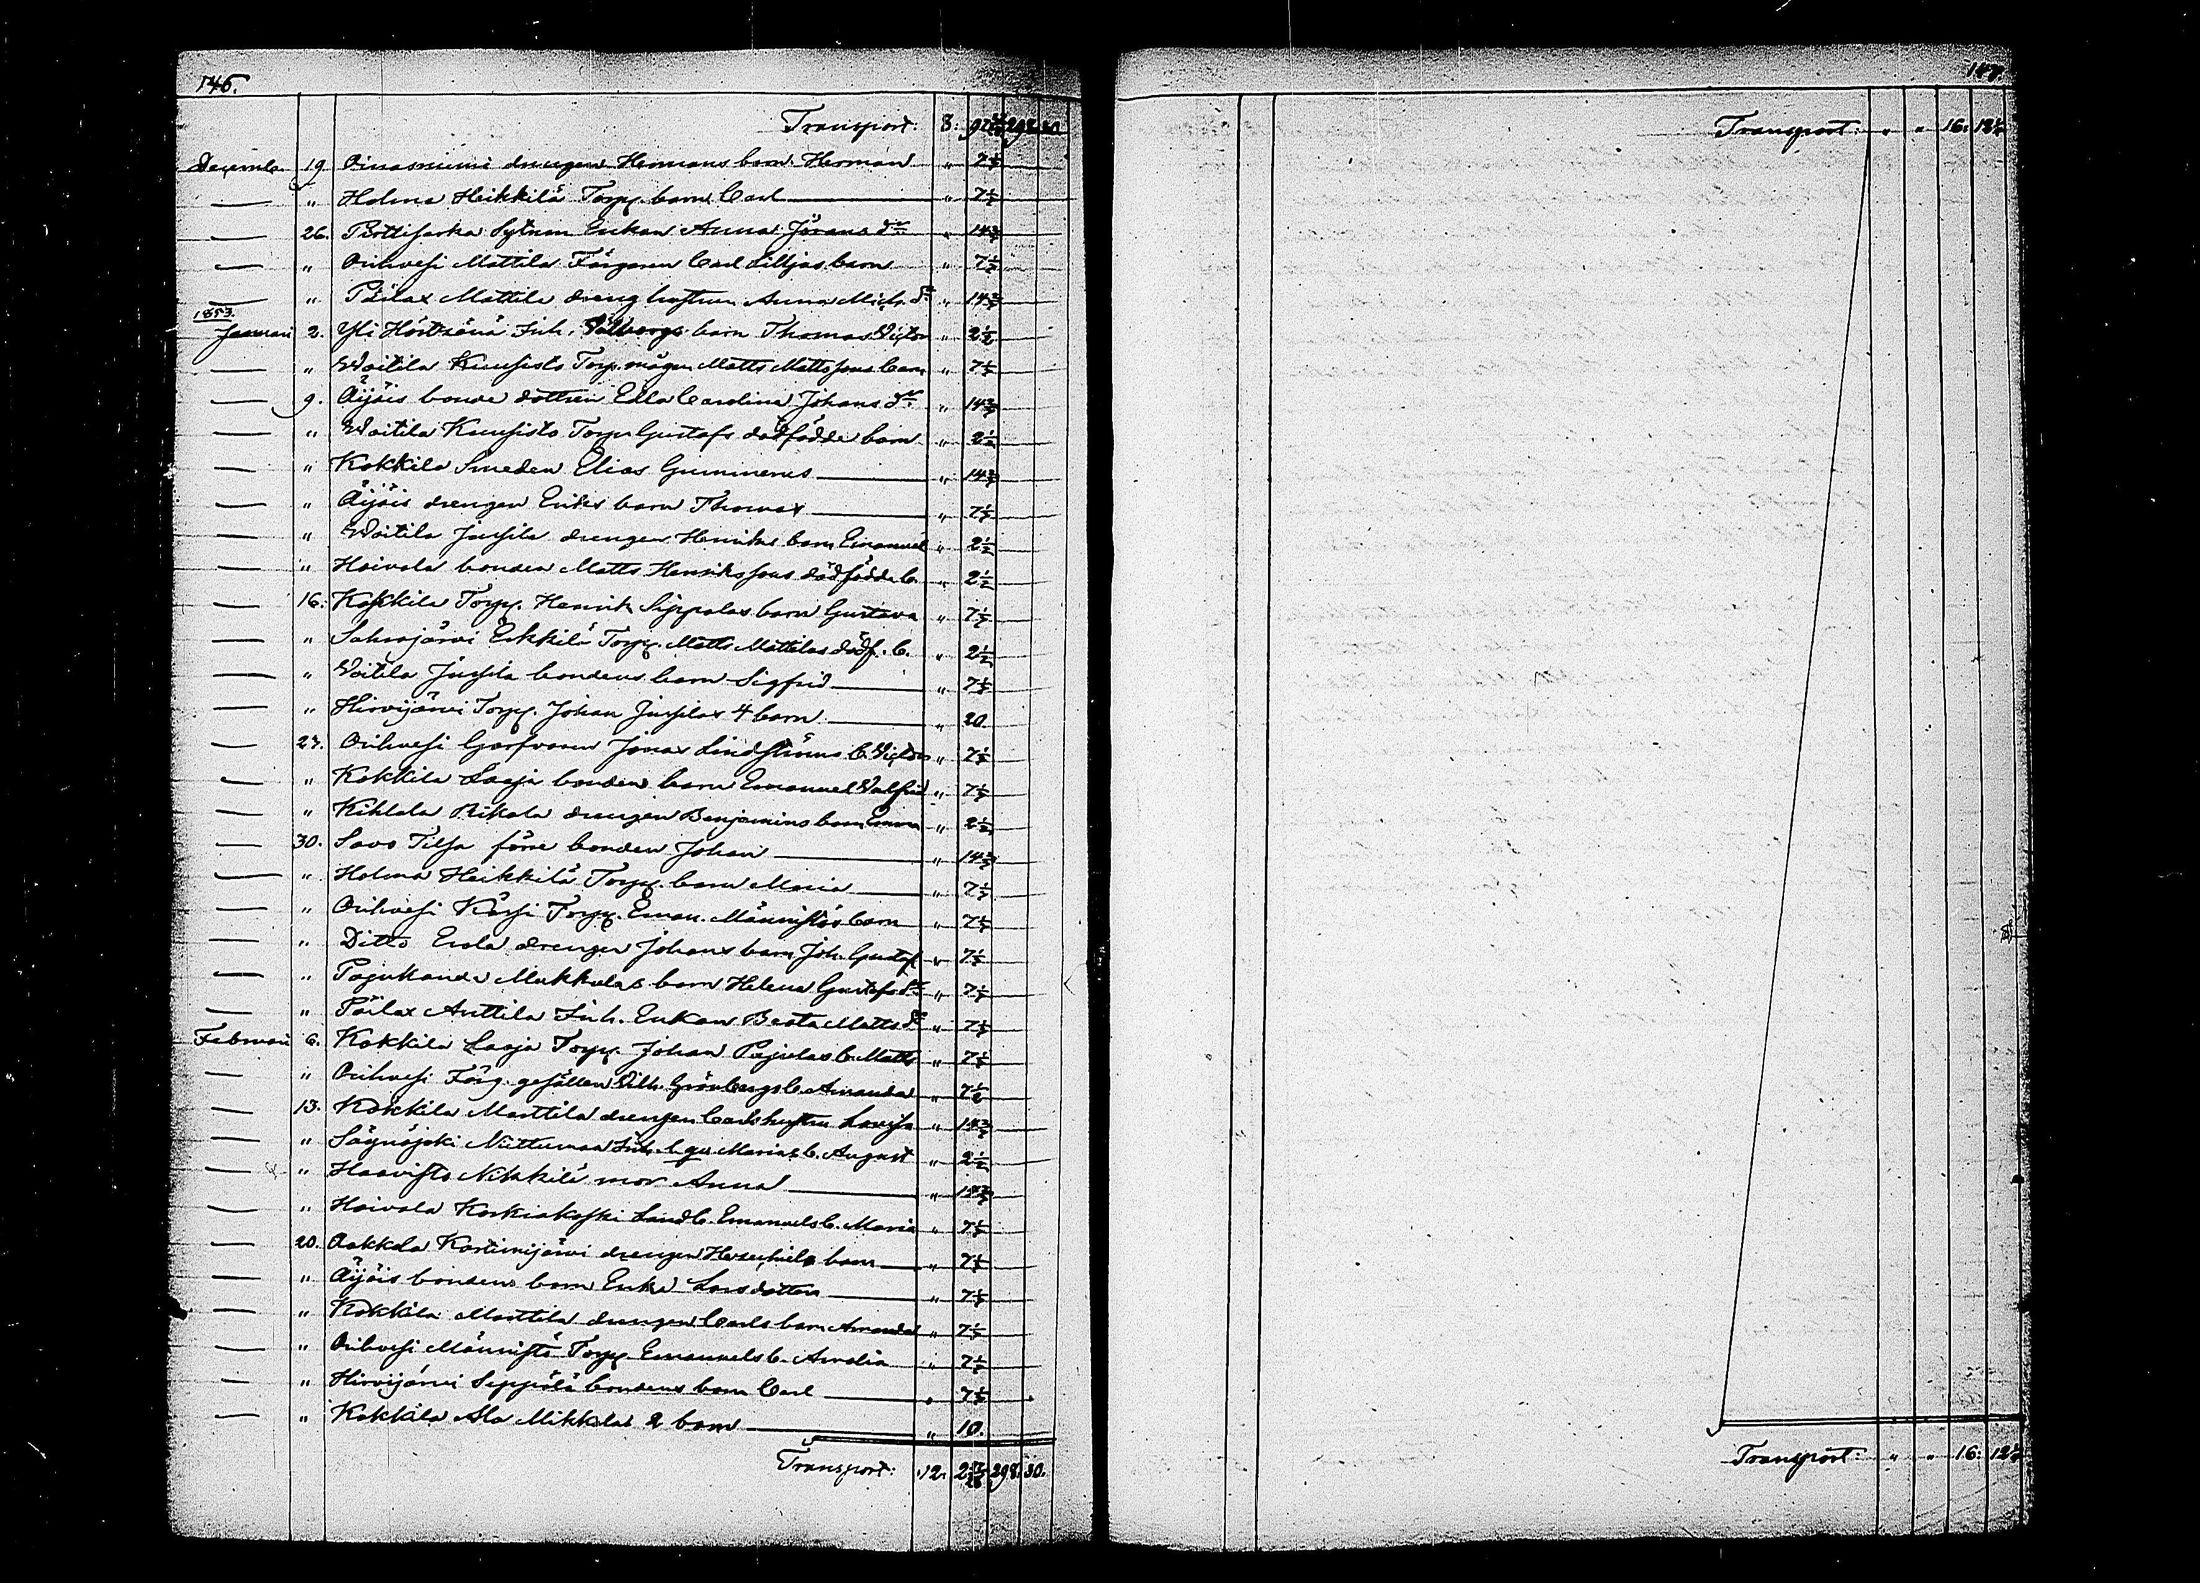 146.
Transport: 8: 298 30
Decembr 19 Oinasniemi drengen Hermans barn Herman " 7½
" Holma Heikkilä Torp. barn Carl " 7½
26. Pirttisarka Sytnim Enkan Anna Jörans dr " 14
" Orihvesi Mattila Färgaren Carl Lilljas barn " 7½
" Päilax Mattila dreng hustrun Anna Mich. dr " 14
1853.
Januari 2. Yli Hörtsänä Inh. barn Thomas Victor " 2½
" Woitila Kuusisto Torp. mågen Matts Mattssons barn " 7½
9. Äijäis bonde dottren Edla Carolina Johans dr " 14
" Woitila Kuusisto Torp Gustafs dödfödde barn " 2½
" Kokkila Smeden Elias Gummerus " 14
" Äijäis drengen Eriks barn Thomas " 7½
" Woitila Jussila drengen Henriks barn Emanuel " 2½
" Hoivala bonden Matts Henrikssons dödfödde b. " 2½
16. Kokkila Torp. Henrik Seppälas barn Gustava " 7½
" Sahrajärvi Erkkilä Torp. Matts Mattilas dödf. b. " 2½
" Woitila Jussila bondens barn Sigfrid " 7½
" Hirvijärvi Torp. Johan Jussilas 4 barn " 20.
23. Orihvesi Garfvaren Jonas Lindströms b. Victor " 7½
" Kokkila Laaja bondens barn Emanuel Valfrid " 7½
" Kihlala Rikala drengen Benjamins barn Emma " 2½
30. Savo Tilsa förre bonden Johan " 14
" Holma Heikkilä Torp. barn Maria " 7½
" Orihvesi Kärsi Torp. Eman. Männistös barn " 7½
" Ditto Erola drengen Johans barn Joh. Gustaf " 7½
" Pajukanda Mukkulas barn Helena Gustafs dr " 7½
" Päilax Anttila Inh. Enkan Beata Matts dr " 7½
Februari 6. Kokkila Laaja Torp. Johan Pajulas b. Matts " 7½
" Orihvesi Färg. gesällen Vilh. Grönbergs b. Amanda " 7½
13. Kokkila Marttila drengen Carls hustru Lovisa " 14
" Sägnäjoki Niittumaa Inh. Marias b. August " 2½
" Haavisto Nikkilä mor Anna " 14
" Hoivala Koskiakoski Landb. Emanuels b. Maria " 7½
20. Aakkola Kortinijärvi drengen Hesechiels barn " 7½
" Äijäis bondens barn Erika Larsdotter " 7½
" Kokkila Marttila drengen Carls barn Amanda " 7½
" Orihvesi Männistö Torp. Emanuels b. Amalia " 7½
" Hirvijärvi Seppälä bondens barn Carl " 7½
" Kokkila Ala Mikkola 2 barn " 10.
Transport: 12. 298. 30.
147.
Transport: " " 16: 12½
Transport: " " 16: 12½